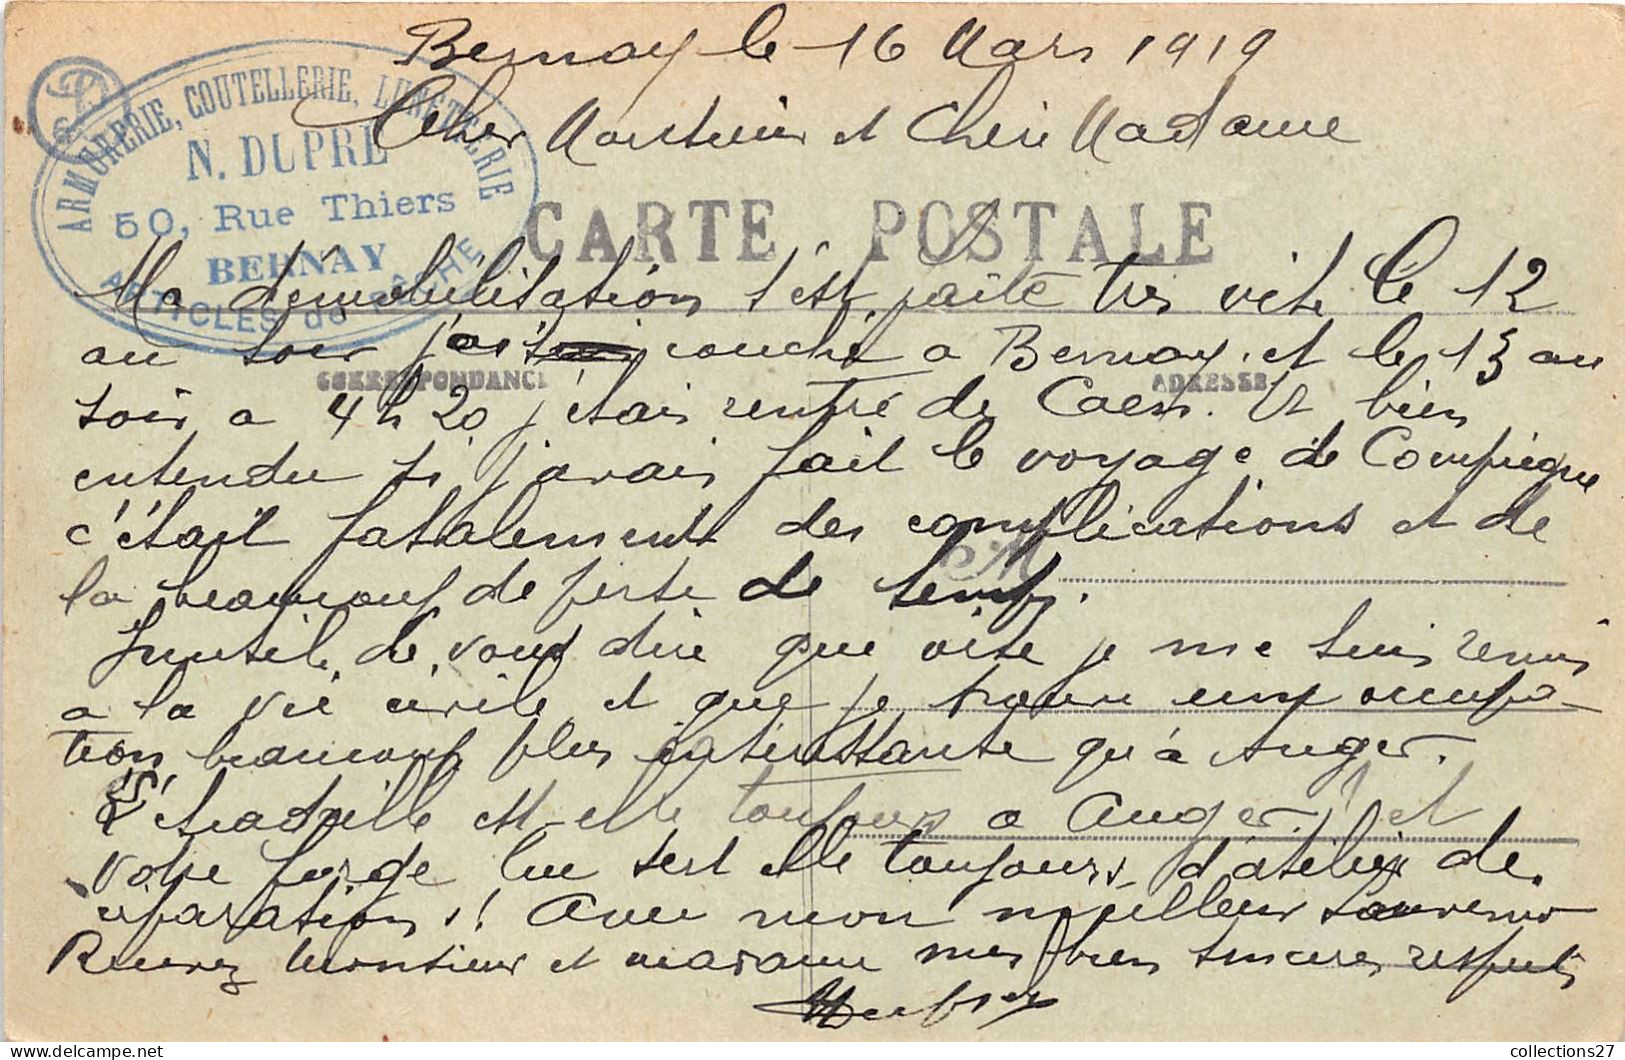 Bernay le 16 Mars 1919
Cher Monsieur et Chère Madame
ARMURERIE, COUTELLERIE, LUNETTERIE
N. DUPRÉ
50, Rue Thiers
BERNAY
ARTICLES de PÊCHE
CARTE POSTALE
Ma démobilitation s'est faite très vite le 12
au soir j'ai couché a Bernay et le 13 au
CORRESPONDANCE
ADRESSE
soir a 4 h 20 j'étais rentré de Caen. Et bien
entendu si j'avais fait le voyage de Compiègne
c'était fatalement des complications et de
la beaucoup de perte de temps.
M
Inutile de vous dire que vite je me suis remis
a la vie civile et que je trouve une occupa-
tion beaucoup plus intéressante qu'à Auger.
L'Escadrille est-elle toujours a Auger et
votre forge lui sert elle toujours d'atelier de
réparations ! Avec mon meilleur souvenir
Recevez Monsieur et madame mes bien sincères respects
collections27